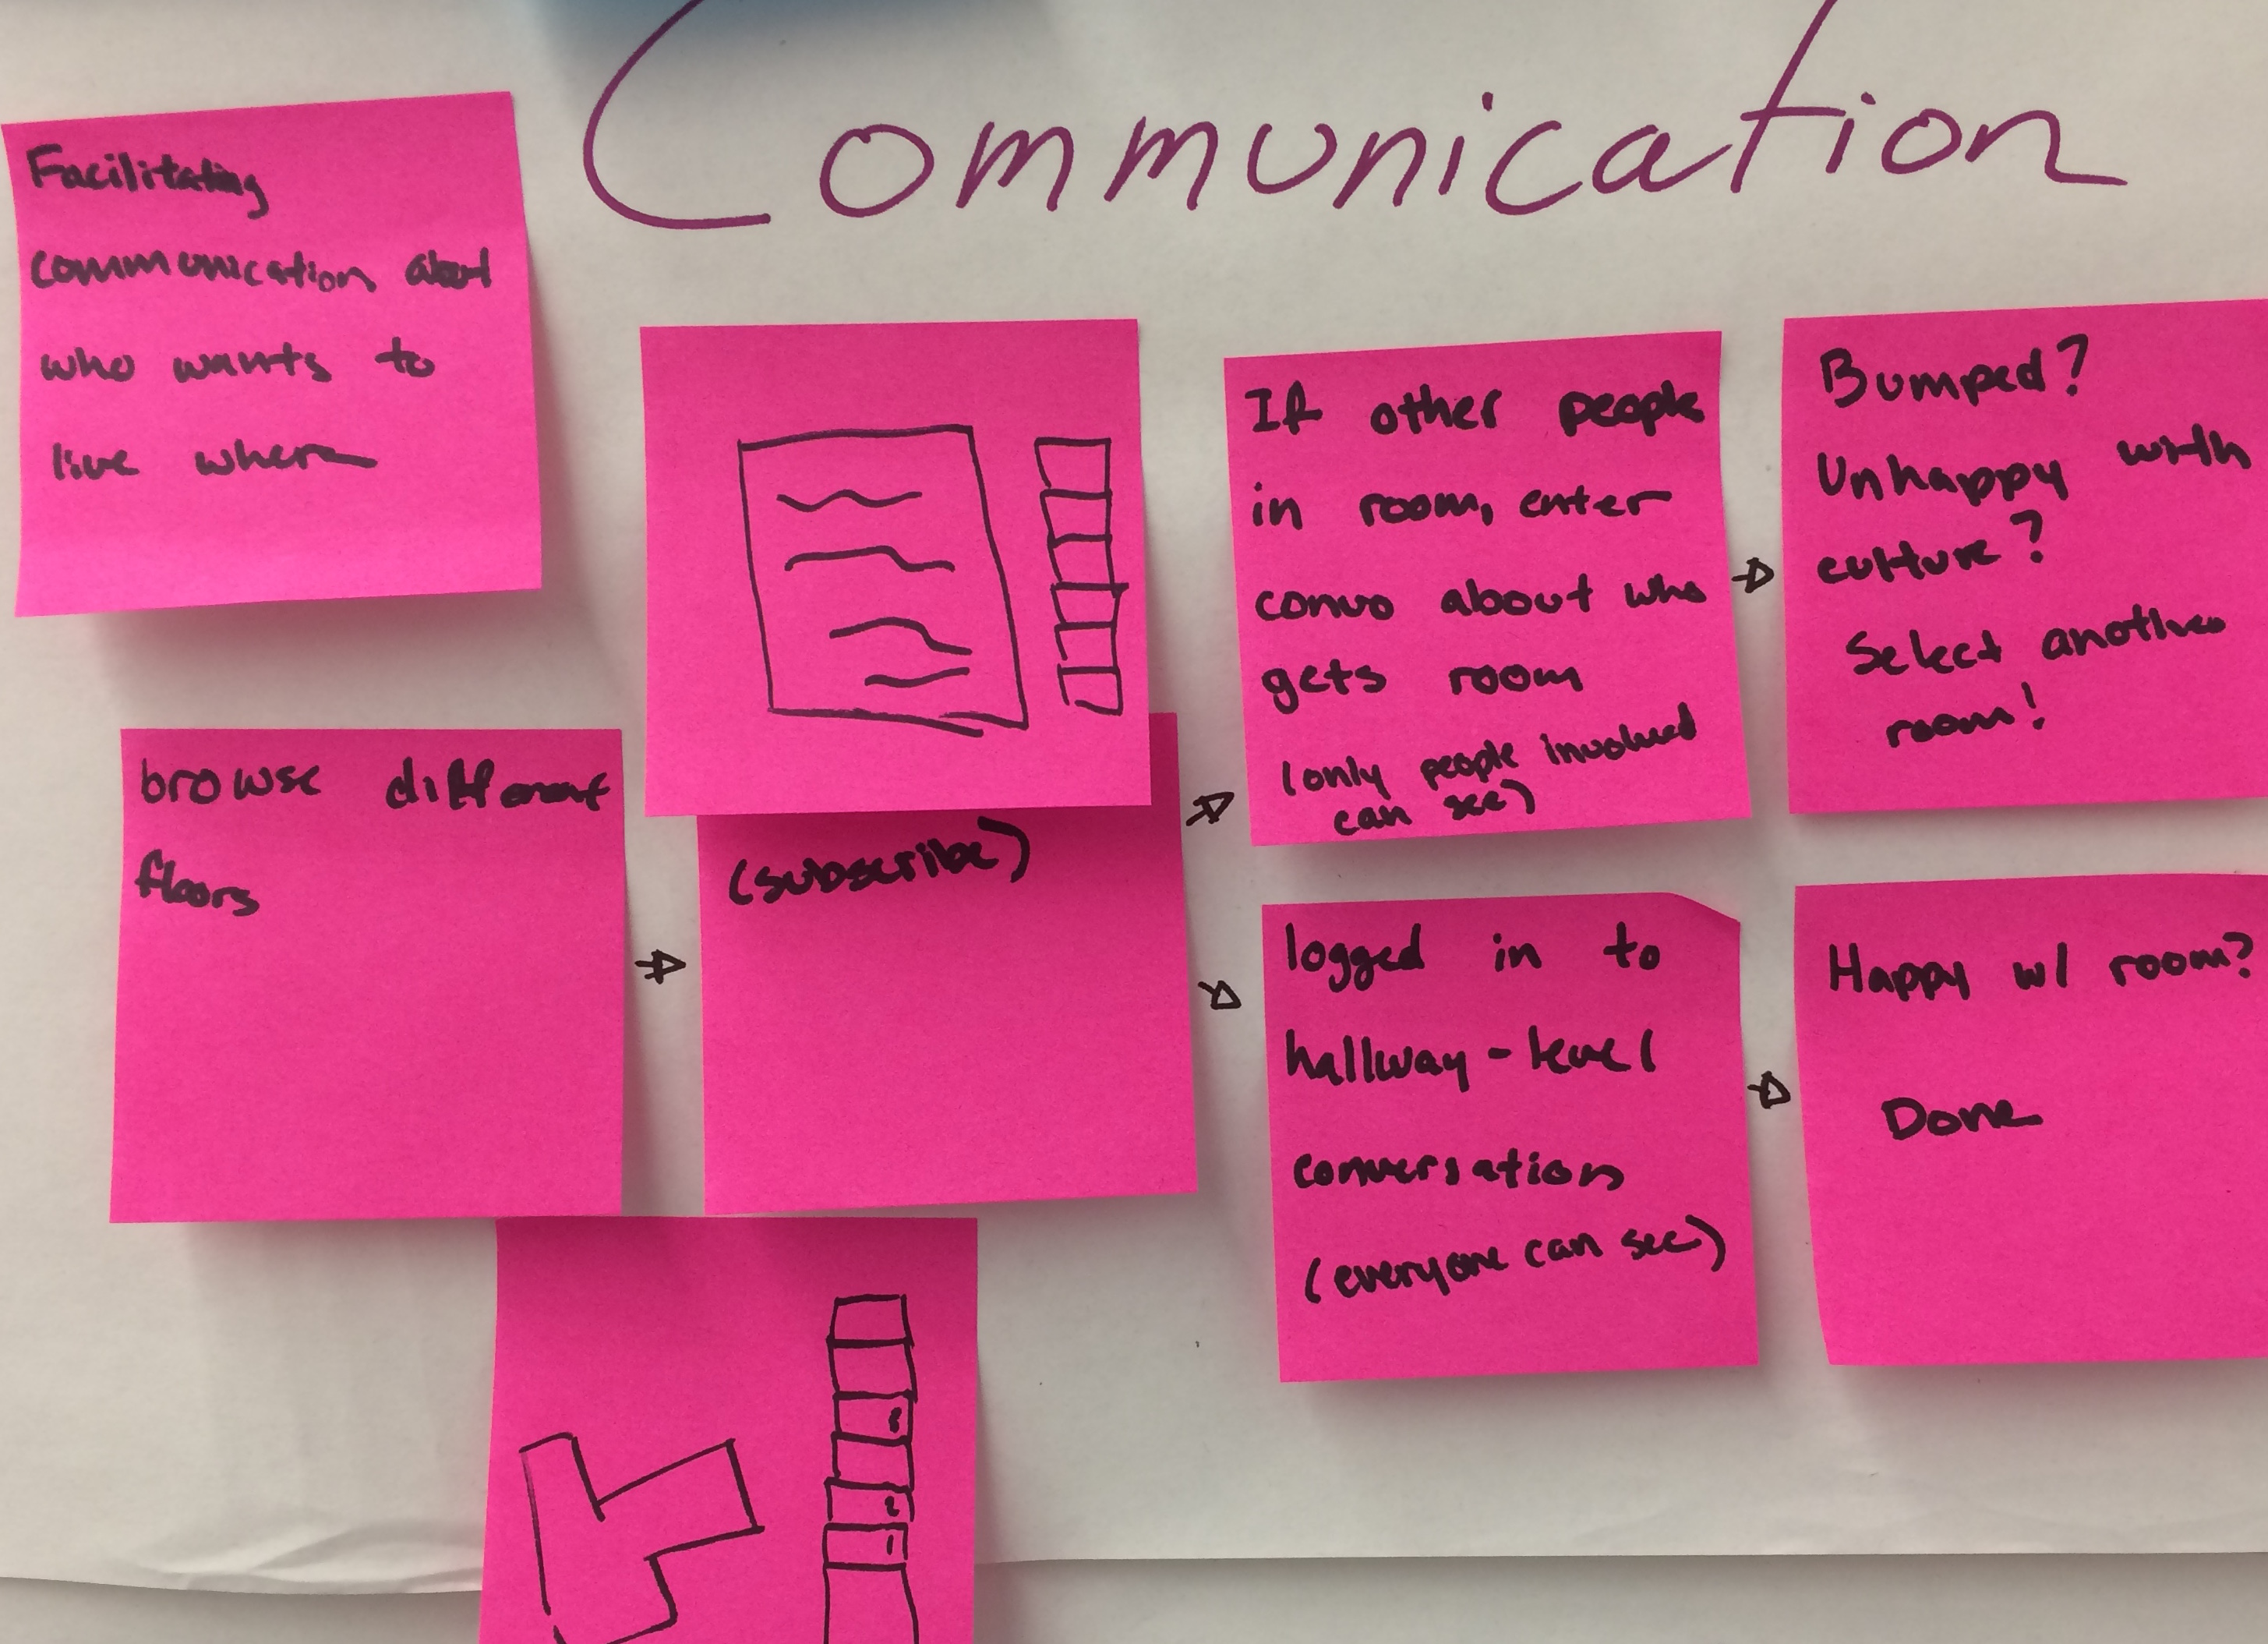 Communication
Facilitating
communication about
who wants to
live where
browse different
floors
(subscribe)
If other people
in room, enter
convo about who
gets room
(only people involved
can see)
Bumped?
Unhappy with
culture?
Select another
room!
logged in to
hallway-level
conversation
(everyone can see)
Happy w/ room?
Done